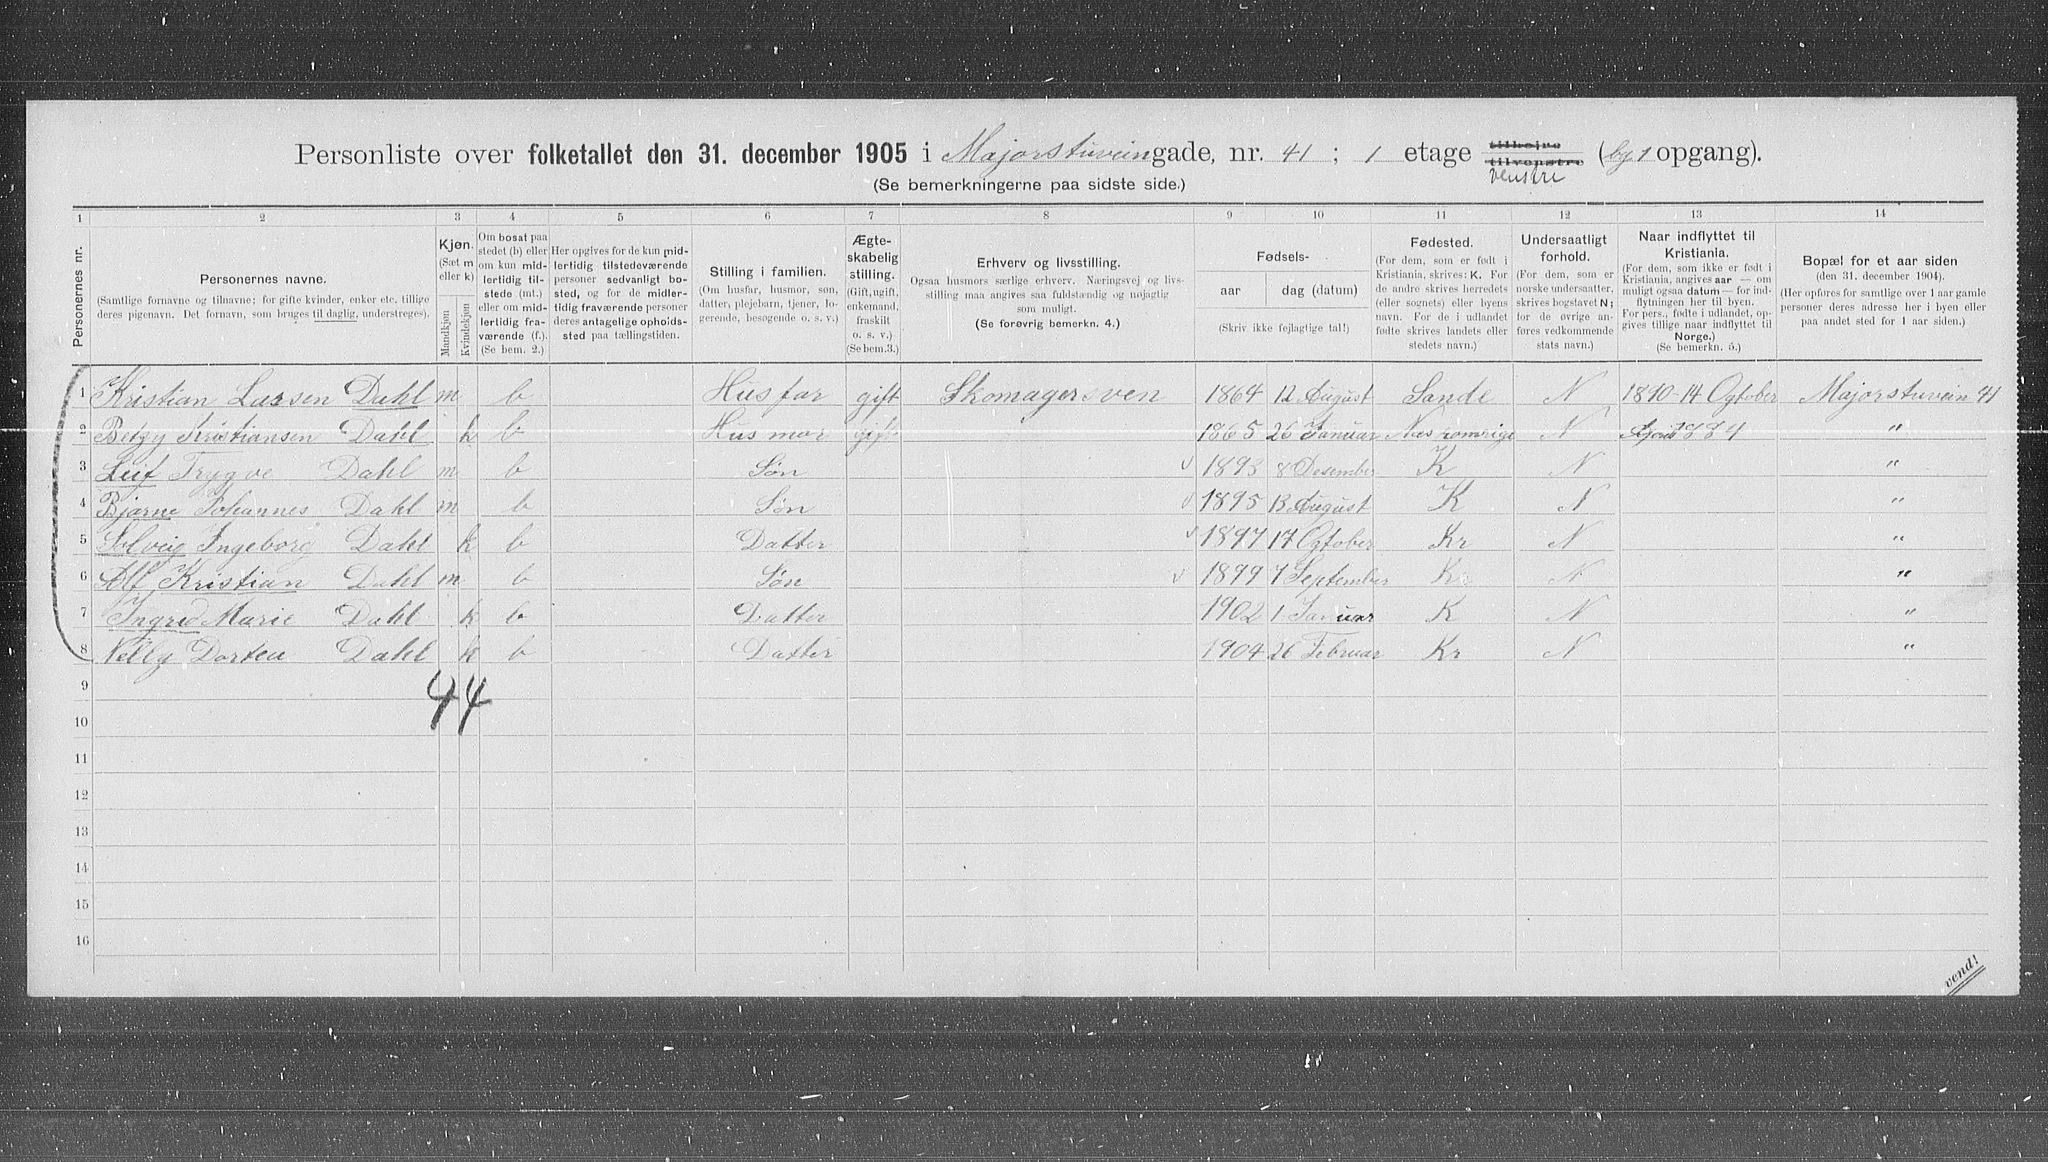 Personliste over folketallet den 31. december 1905 i Majorstuveiengade, nr. 41 ; 1 etage tilhøire tilvenstre venstre (by 1 opgang).
(Se bemerkningerne paa sidste side.)
1 2 3 4 5 6 7 8 9 10 11 12 13 14
Personernes nr.
Personernes navne.
(Samtlige fornavne og tilnavne; for gifte kvinder, enker etc. tillige deres pigenavn. Det fornavn, som bruges til daglig, understreges).
Kjøn.
(Sæt m eller k)
Mandkjøn
Kvindekjøn
Om bosat paa stedet (b) eller om kun midlertidig tilstede (mt.) eller om midlertidig fraværende (f.).
(Se bem. 2.)
Her opgives for de kun midlertidig tilstedeværende personer sedvanligt bosted, og for de midlertidig fraværende personer deres antagelige opholdssted paa tællingstiden.
Stilling i familien.
(Om husfar, husmor, søn, datter, plejebarn, tjener, logerende, besøgende o. s. v.)
Ægteskabelig stilling.
(Gift, ugift, enkemand, fraskilt o. s. v.)
(Se bem.3.)
Erhverv og livsstilling.
Ogsaa husmors særlige erhverv. Næringsvej og livsstilling maa angives saa fuldstændig og nøjagtig som muligt.
(Se forøvrig bemerkn. 4.)
Fødsels-
aar
dag (datum)
(Skriv ikke fejlagtige tal!)
Fødested.
(For dem, som er født i Kristiania, skrives: K. For de andre skrives herredets (eller sognets) eller byens navn. For de i udlandet fødte skrives landets eller stedets navn.)
Undersaatligt forhold.
(For dem, som er norske undersaatter, skrives bogstavet N; for de øvrige anføres vedkommende stats navn.)
Naar indflyttet til Kristiania.
(For dem, som ikke er født i Kristiania, angives aar — om muligt ogsaa datum — for indflytningen her til byen. For pers., fødte i udlandet, opgives tillige naar indflyttet til Norge.)
(Se bemerkn. 5.)
Bopæl for et aar siden
(den 31. december 1904).
(Her opføres for samtlige over 1 aar gamle personer deres adresse her i byen eller paa andet sted for 1 aar siden.)
1 Kristian Larsen Dahl m b Husfar gift Skomagersven 1864 12 August Sande N 1890-14 Ogtober Majorstuvein 41
2 Betzy Kristiansen Dahl k b Husmor gift 1865 26 Januar Nes N 1884 "
3 Leif Trygve Dahl m b Søn 1893 8 Desember K N "
4 Bjarne Johannes Dahl m b Søn 1895 13 August K N "
5 Solveig Ingeborg Dahl k b Datter 1897 17 Ogtober Kr N "
6 Alf Kristian Dahl m b Søn 1899 7 September Kr N "
7 Ingrid Marie Dahl k b Datter 1902 1 Januar K N "
8 Nelly Dorten Dahl k b Datter 1904 26 Februar Kr N "
9
44
10
11
12
13
14
15
16
vend!